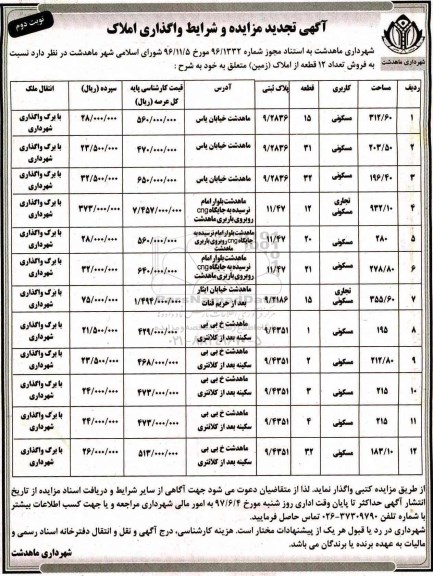 نوبت دوم
آگهی تجدید مزایده و شرایط واگذاری املاک
شهرداری ماهدشت
شهرداری ماهدشت به استناد مجوز شماره ۹۶/۱۳۳۲ مورخ ۹۶/۱۱/۵ شورای اسلامی شهر ماهدشت در نظر دارد نسبت
به فروش تعداد ۱۲ قطعه از املاک (زمین) متعلق به خود به شرح :
ردیف مساحت کاربری قطعه پلاک ثبتی آدرس قیمت کارشناسی پایه کل عرصه (ریال) سپرده (ریال) انتقال ملک
۱ ۳۱۲/۶۰ مسکونی ۱۵ ۹/۲۸۳۶ ماهدشت خیابان یاس ۵۶۰/۰۰۰/۰۰۰ ۲۸/۰۰۰/۰۰۰ با برگ واگذاری شهرداری
۲ ۲۰۳/۵۰ مسکونی ۳۱ ۹/۲۸۳۶ ماهدشت خیابان یاس ۴۷۰/۰۰۰/۰۰۰ ۲۳/۵۰۰/۰۰۰ با برگ واگذاری شهرداری
۳ ۱۹۶/۴۰ مسکونی ۳۲ ۹/۲۸۳۶ ماهدشت خیابان یاس ۶۵۰/۰۰۰/۰۰۰ ۳۲/۵۰۰/۰۰۰ با برگ واگذاری شهرداری
۴ ۹۳۲/۱۰ تجاری مسکونی ۱۲ ۱۱/۴۷ ماهدشت بلوار امام نرسیده به جایگاه cng روبروی باربری ماهدشت ۷/۴۵۷/۰۰۰/۰۰۰ ۳۷۳/۰۰۰/۰۰۰ با برگ واگذاری شهرداری
۵ ۲۸۰ مسکونی ۲۰ ۱۱/۴۷ ماهدشت بلوار امام نرسیده به جایگاه cng روبروی باربری ماهدشت ۵۶۰/۰۰۰/۰۰۰ ۲۸/۰۰۰/۰۰۰ با برگ واگذاری شهرداری
۶ ۲۷۸/۸۰ مسکونی ۲۱ ۱۱/۴۷ ماهدشت بلوار امام نرسیده به جایگاه cng روبروی باربری ماهدشت ۶۴۰/۰۰۰/۰۰۰ ۳۲/۰۰۰/۰۰۰ با برگ واگذاری شهرداری
۷ ۳۵۵/۶۰ تجاری مسکونی ۱۵ ۹/۲۱۸۶ ماهدشت خیابان ایثار بعد از حریم قنات ۱/۴۹۴/۰۰۰/۰۰۰ ۷۵/۰۰۰/۰۰۰ با برگ واگذاری شهرداری
۸ ۱۹۵ مسکونی ۱ ۹/۴۳۵۱ ماهدشت خ بی بی سکینه بعد از کلانتری ۴۲۹/۰۰۰/۰۰۰ ۲۱/۵۰۰/۰۰۰ با برگ واگذاری شهرداری
۹ ۲۱۲/۸۰ مسکونی ۲ ۹/۴۳۵۱ ماهدشت خ بی بی سکینه بعد از کلانتری ۴۶۸/۰۰۰/۰۰۰ ۲۳/۵۰۰/۰۰۰ با برگ واگذاری شهرداری
۱۰ ۲۱۵ مسکونی ۳ ۹/۴۳۵۱ ماهدشت خ بی بی سکینه بعد از کلانتری ۴۷۳/۰۰۰/۰۰۰ ۲۴/۰۰۰/۰۰۰ با برگ واگذاری شهرداری
۱۱ ۲۱۵ مسکونی ۴ ۹/۴۳۵۱ ماهدشت خ بی بی سکینه بعد از کلانتری ۴۷۳/۰۰۰/۰۰۰ ۲۴/۰۰۰/۰۰۰ با برگ واگذاری شهرداری
۱۲ ۱۸۳/۱۰ مسکونی ۳۲ ۹/۴۳۵۱ ماهدشت خ بی بی سکینه بعد از کلانتری ۵۱۳/۰۰۰/۰۰۰ ۲۶/۰۰۰/۰۰۰ با برگ واگذاری شهرداری
از طریق مزایده کتبی واگذار نماید. لذا از متقاضیان دعوت می شود جهت آگاهی از سایر شرایط و دریافت اسناد مزایده از تاریخ
انتشار آگهی حداکثر تا پایان وقت اداری روز شنبه مورخ ۹۷/۶/۴ به امور مالی شهرداری مراجعه و یا جهت کسب اطلاعات بیشتر
با شماره تلفن ۳۷۳۰۹۷۹۰-۰۲۶ تماس حاصل فرمایید.
شهرداری در رد یا قبول هر یک از پیشنهادات مختار است. هزینه کارشناسی، درج آگهی و نقل و انتقال دفترخانه اسناد رسمی و
مالیات به عهده برنده یا برندگان می باشد.
شهرداری ماهدشت